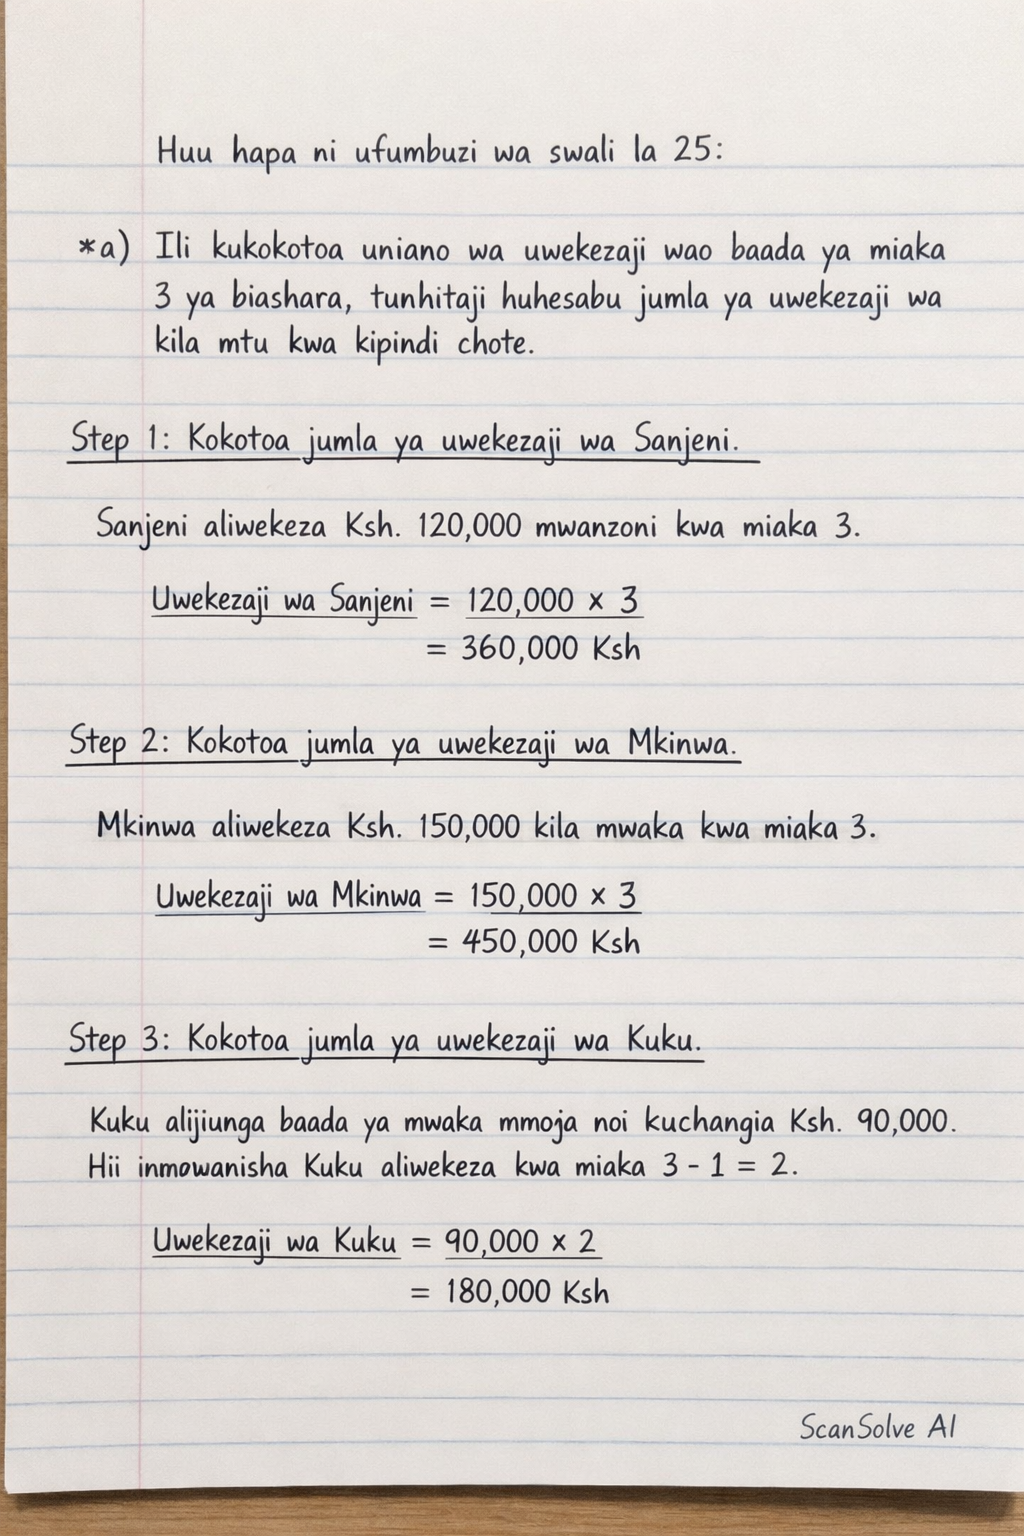 Huu hapa ni ufumbuzi wa swali la 25:
*a) Ili kukokotoa uniano wa uwekezaji wao baada ya miaka
3 ya biashara, tunhitaji huhesabu jumla ya uwekezaji wa
kila mtu kwa kipindi chote.
Step 1: Kokotoa jumla ya uwekezaji wa Sanjeni.
Sanjeni aliwekeza Ksh. 120,000 mwanzoni kwa miaka 3.
Uwekezaji wa Sanjeni = 120,000 × 3
= 360,000 Ksh
Step 2: Kokotoa jumla ya uwekezaji wa Mkinwa.
Mkinwa aliwekeza Ksh. 150,000 kila mwaka kwa miaka 3.
Uwekezaji wa Mkinwa = 150,000 × 3
= 450,000 Ksh
Step 3: Kokotoa jumla ya uwekezaji wa Kuku.
Kuku alijiunga baada ya mwaka mmoja noi kuchangia Ksh. 90,000.
Hii inmowanisha Kuku aliwekeza kwa miaka 3 - 1 = 2.
Uwekezaji wa Kuku = 90,000 × 2
= 180,000 Ksh
ScanSolve AI